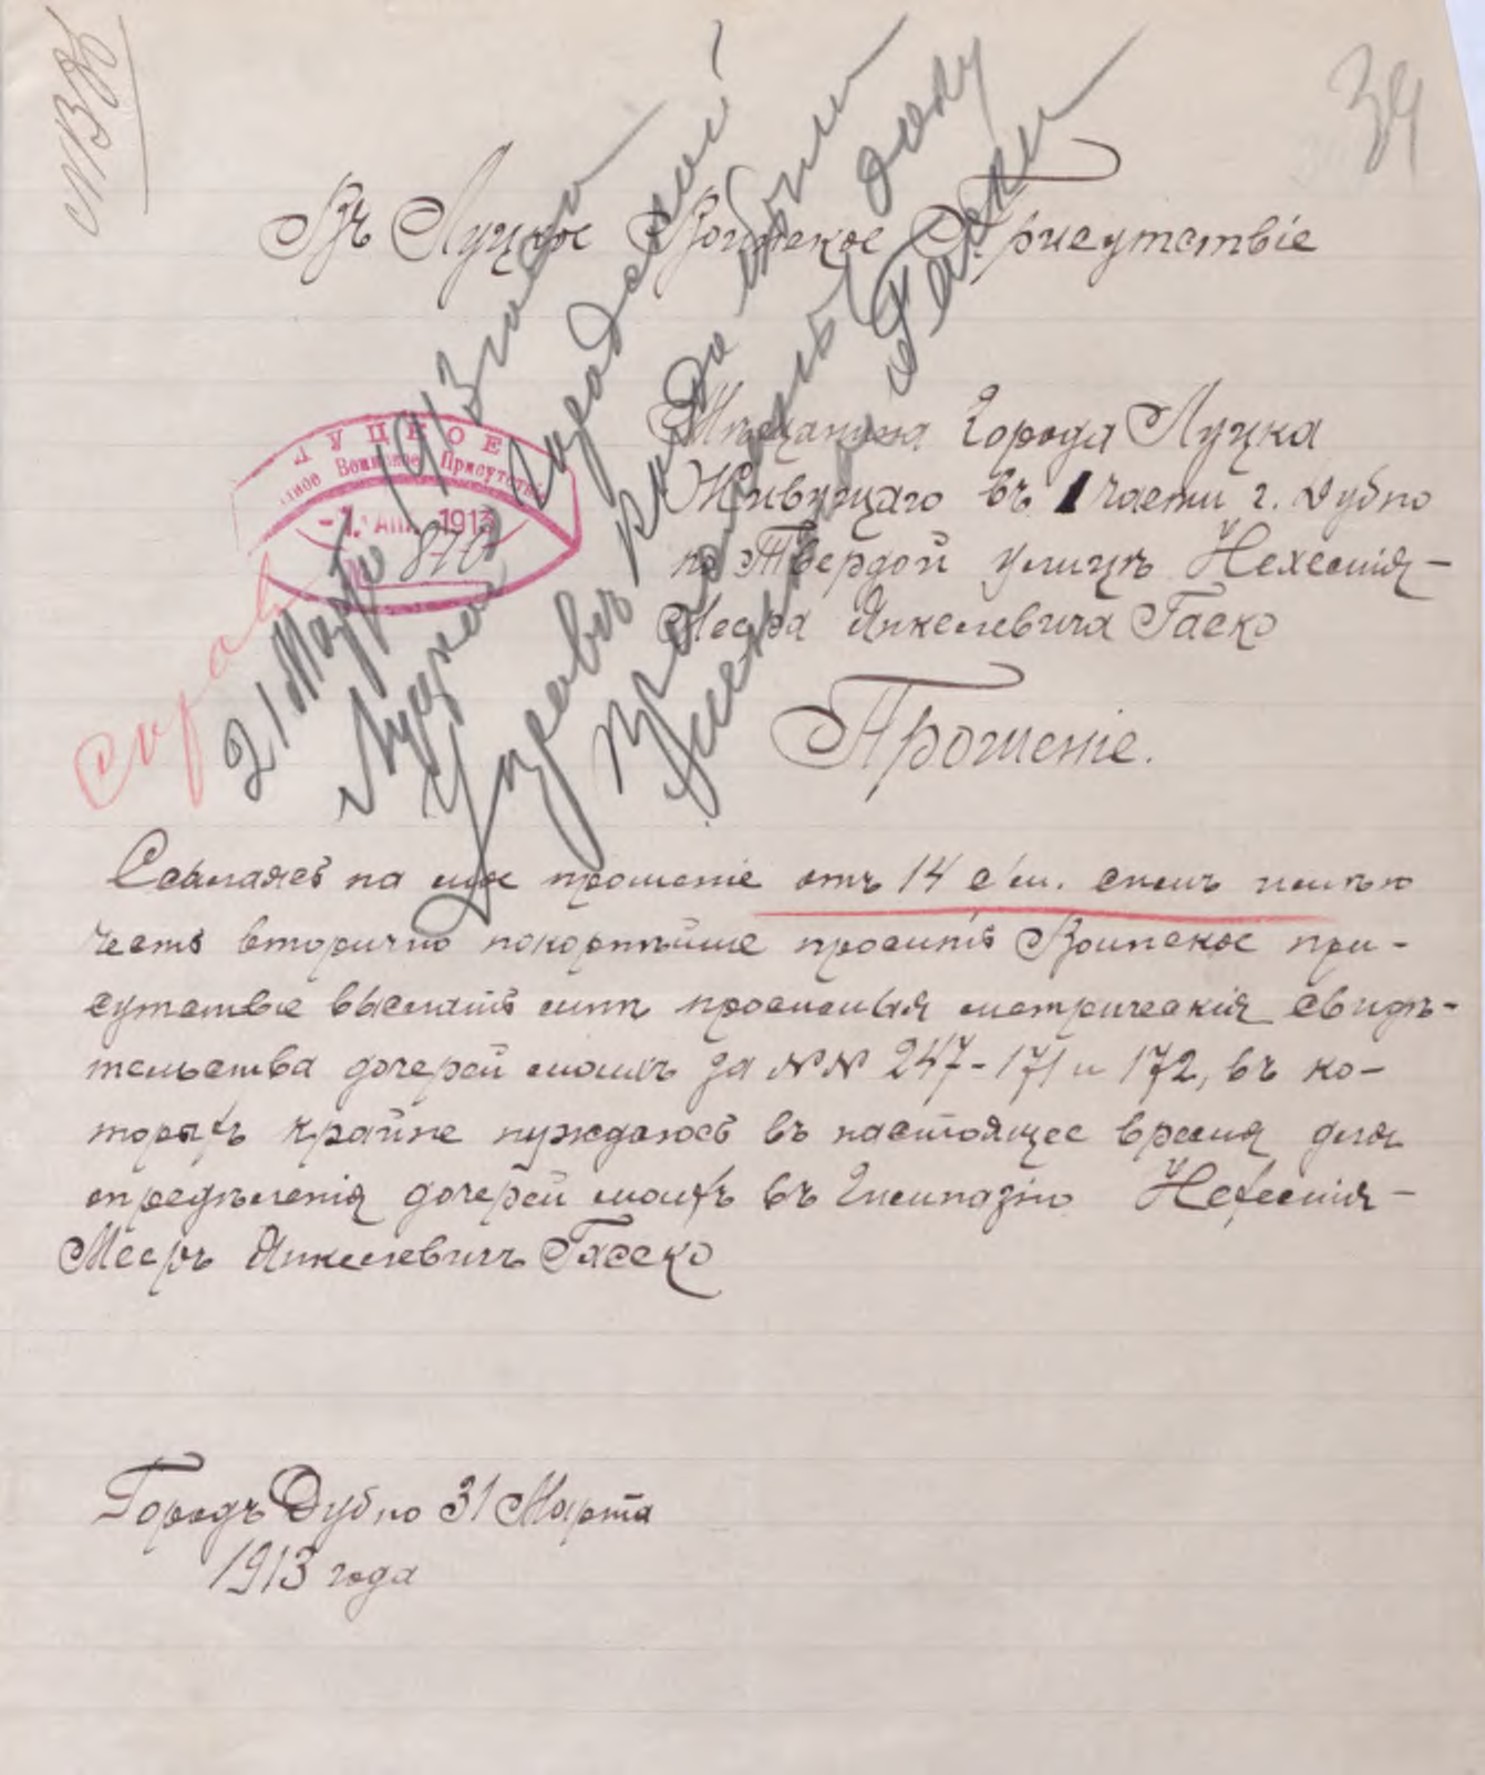 МВД
39
Въ Луцкое Воинское Присутствіе
ЛУЦКОЕ
Воинское Присутствіе
-1. АПР. 1913
870
Мѣщанина Города Луцка
Живущаго въ 1 части г. Дубно
по Твердой улицѣ Нехемія-
Меера Янкелевича Гаско
21 Марта 1913 года
Луцкой Городской
Управѣ
Гаски
Прошеніе.
Ссылаясь на мое прошеніе отъ 14 с/м. симъ имѣю
честь вторично покорнѣйше просить Воинское при-
сутствіе выслать мнѣ просимыя метрическія свидѣ-
тельства дочерей моихъ за №№ 247-171 и 172, въ ко-
торыхъ крайне нуждаюсь въ настоящее время для
опредѣленія дочерей моихъ въ Гимназію Нехемія-
Мееръ Янкелевичъ Гаско
Городъ Дубно 31 Марта
1913 года